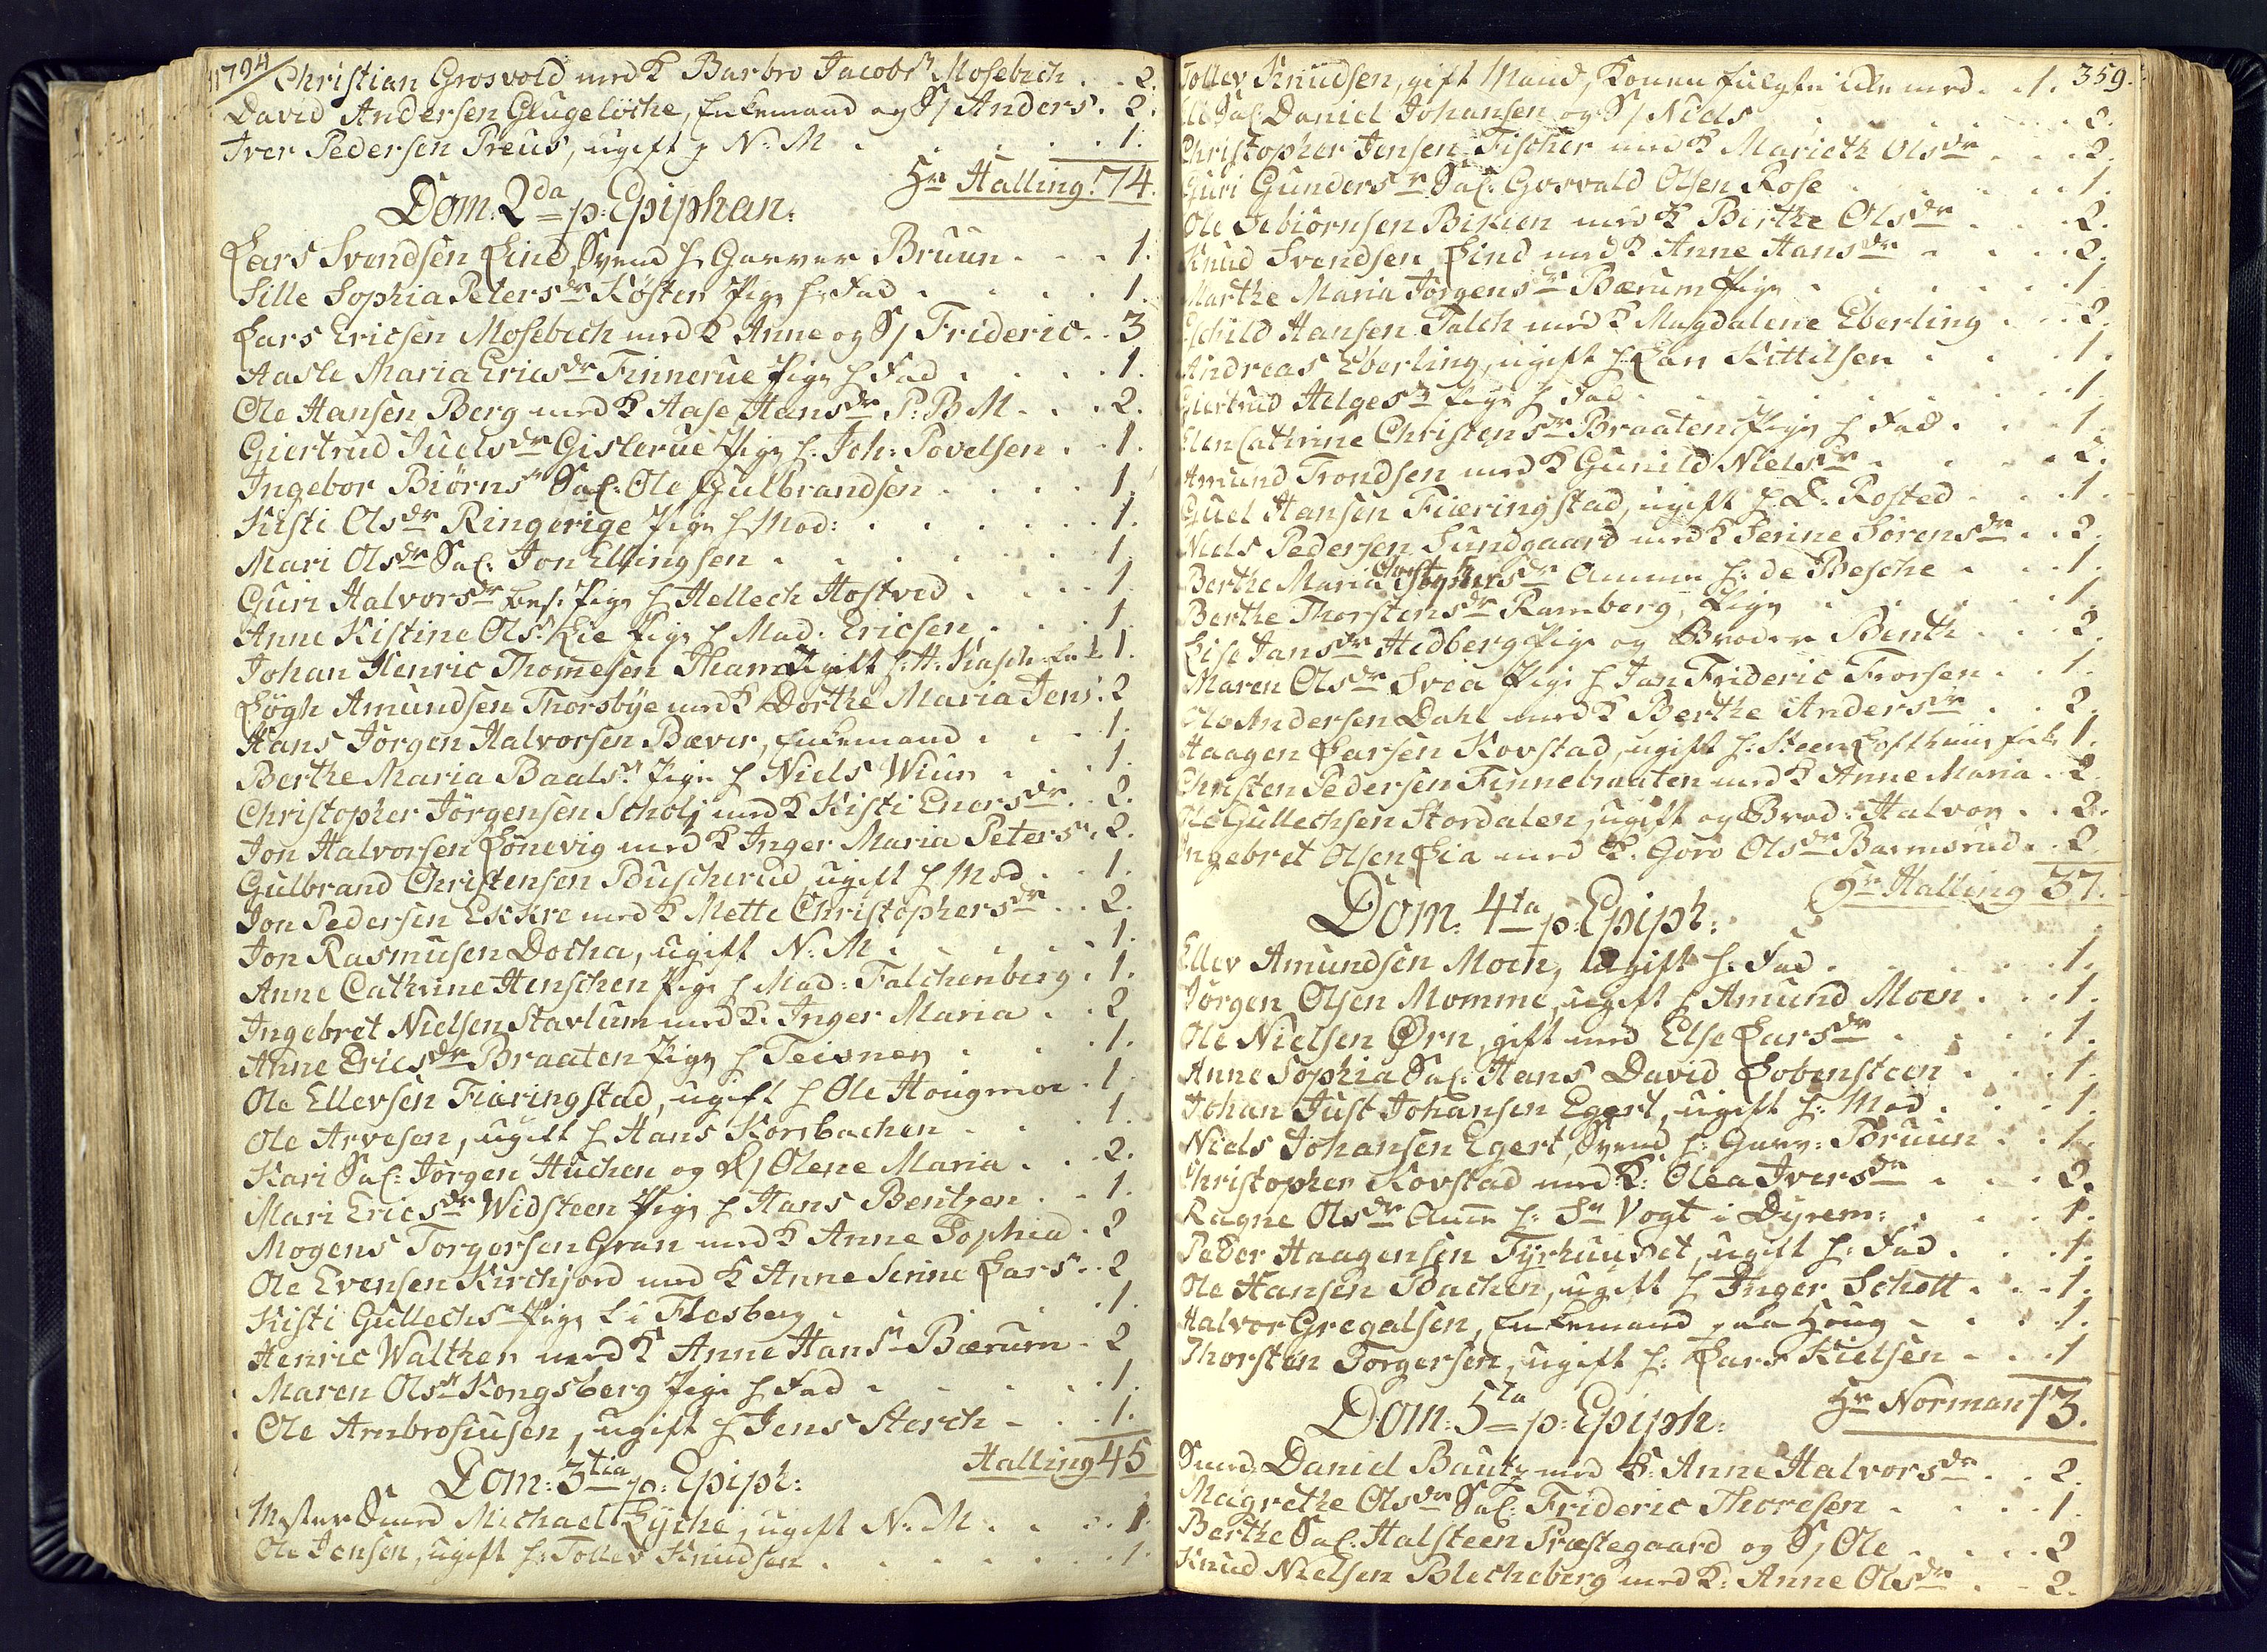 1794
Christian Grosvold med K Barbro Jacobsr Mosebech . . 2.
David Andersen Glugeløche, Enkemand og S/ Anders . 2.
Iver Pedersen Preus, ugift p N. M . . . . 1.
Hr Halling. 74.
Dom. 2da p. Epiphan:
Lars Svendsen Lind, Svend h. Garver Bruun . . . 1.
Sille Sophia Petersdr Køster Pige h. Fad . . . . 1.
Lars Ericsen Mosebech med K Anne og S/ Frideric . . 3
Aasle Maria Ericsdr Finnerue Pige h Fad . . . . 1.
Ole Hansen Berg med K Aase Hansdr P. B M . . . 2.
Giertrud Juelsdr Gislerue Pige h. Joh: Povelsen . . 1.
Ingebor Biørnsr Sal: Ole Gulbrandsen . . . . 1.
Kisti Olsdr Ringerige Pige h Mod: . . . . . . 1.
Mari Olsdr Sal: Jon Ellingsen . . . . . . 1
Guri Halvorsdr bes. Pige h Hellech Hostved . . . . 1.
Anne Kistine Olsr Lie Pige h Mad. Ericsen . . . 1.
Johan Henric Thomesen Tham Ugift h. H. Kasch 1.
Løgh Amundsen Thorsbye med K Dorthe Maria Jens: 2
Hans Jørgen Halvorsen Bæver, Enkemand . . . 1.
Berthe Maria Baalsr Pige h Niels Wiur . . . 1.
Christopher Jørgensen Scholj med K Kisti Enersdr . . 2.
Jon Halvorsen Lønevig med K Inger Maria Petersr . 2.
Gulbrand Christensen Buscherud, ugift h Mod . . 1.
Jon Pedersen Ekkre med K Mette Christophersdr . . 2.
Jon Rasmusen Docha, ugift N. M . . . . 1.
Anne Cathrine Henschen Pige h Mad: Falchenberg . 1.
Ingebret Nielsen Stavlum med K. Inger Maria . . 2
Anne Ericsdr Braaten Pige h Teisner . . . . 1.
Ole Ellevsen Fiæringstad, ugift h Ole Hougmoe . 1.
Ole Arvesen, ugift h Hans Korsbachen . . . 1.
Kari Sal: Jørgen Huchen og D/ Olene Maria . . . 2.
Mari Ericsdr Widsteen Pige h Hans Bentzen . . 1.
Mogens Torgersen Gran med K Anne Sophia . 2
Ole Evensen Kirchjord med K Anne Serine Larsr . 2
Kisti Gullechsr Pige L i Flesberg . . . . . 1.
Henric Walther med K Anne Hansr Bærum . 2
Maren Olsr Kongsberg Pige h Fad . . . . . 1.
Ole Ambrosiusen, ugift h Jens Storch . . . 1.
Halling 45
Dom: 3tia p. Epiph:
Mester Smed Michael Lyche, ugift N. M . . . . 1.
Ole Jensen, ugift h. Tollev Knudsen . . . . . . 1.
359.
Tollev Knudsen, gift Mand, Konen fulgte icke med . . 1.
Sal: Daniel Johansen og S/ Niels . . . . . . 2.
Christopher Jensen Fischer med K Marieth Olsdr . . . 2.
Guri Gundersr Sal: Gorvald Olsen Rose . . . . . 1.
Ole Asbiørnsen Bikien med K Birthe Olsdr . . . 2.
Knud Svendsen Lind med K Anne Hansdr . . . . 2.
Marthe Maria Jørgensdr Bærum Pige . . . . . . 1
Eschild Hansen Falch med K Magdalene Eberling . . . 2.
Andreas Eberling, ugift h. Lars Kittilsen . . . . 1.
Giertrud Helgesr Pige h Fad . . . . . . . 1.
Elen Cathrine Christensdr Braaten Pige h Fad . . . 1.
Amund Trondsen med K Gunild Nielsdr . . . . 2.
Guel Hansen Fiæringstad, ugift h. D. Rosted . . . 1.
Niels Pedersen Sundgaard med K Serine Sørensdr . . 2.
Berthe Maria Christophersdr Amme h: de Besche . . . 1.
Berthe Thorstensdr Ramberg, Pige . . . . . 1
Lise Jansdr Hedberg Pige og Broder Benth . . . 2.
Maren Olsdr Svea Pige h Jan Frideric Frorsen . . 1.
Ole Andersen Dahl med K Berthe Andersdr . . . 2.
Haagen Larsen Kovstad, ugift h. Steen Lofthuus 1.
Christen Pedersen Finnebraaten med K Anne Maria . 2.
Ole Gullechsen Stordalen, ugift og Brod: Halvor . . 2.
Ingebret Olsen Lia med K. Goro Olsdr Barmsrud . . 2
Hr Halling 37.
Dom: 4ta p: Epiph:
Ellev Amundsen Moen, Ugift h. Fad . . . . . . 1.
Jørgen Olsen Momme, ugift h Amund Moen . . . 1.
Ole Nielsen Ørn, gift med Else Larsdr . . . . 1.
Anne Sophia Sal: Hans David Lobensteen . . . 1.
Johan Just Johansen Egert, ugift h. Mod . . . . 1.
Niels Johansen Egert, Svend h. Garv: Bruun . . 1.
Christopher Kovstad med K: Olea Iversdr . . . . 2.
Ragne Olsdr Amme h. Sr Vogt i Dyrem: . . . . 1.
Peder Haagensen Fyrhuuset, ugift h. Fad . . . . 1.
Ole Hansen Bachen, ugift h Inger Schott . . . 1.
Halvor Gregalsen, Enkemand paa Houg . . . . 1.
Thorsten Torgersen, ugift h. Lars Kielsen . . . 1
Hr Norman 13.
Dom: 5ta p: Epiph:
Smed Daniel Bautz med K: Anne Halvorsdr . . 2.
Magrethe Olsdr Sal: Frideric Thoresen . . . . 1
Berthe Sal: Halsteen Præstegaard og S/ Ole . . . 2
Knud Nielsen Blecheberg med K: Anne Olsdr . . 2.